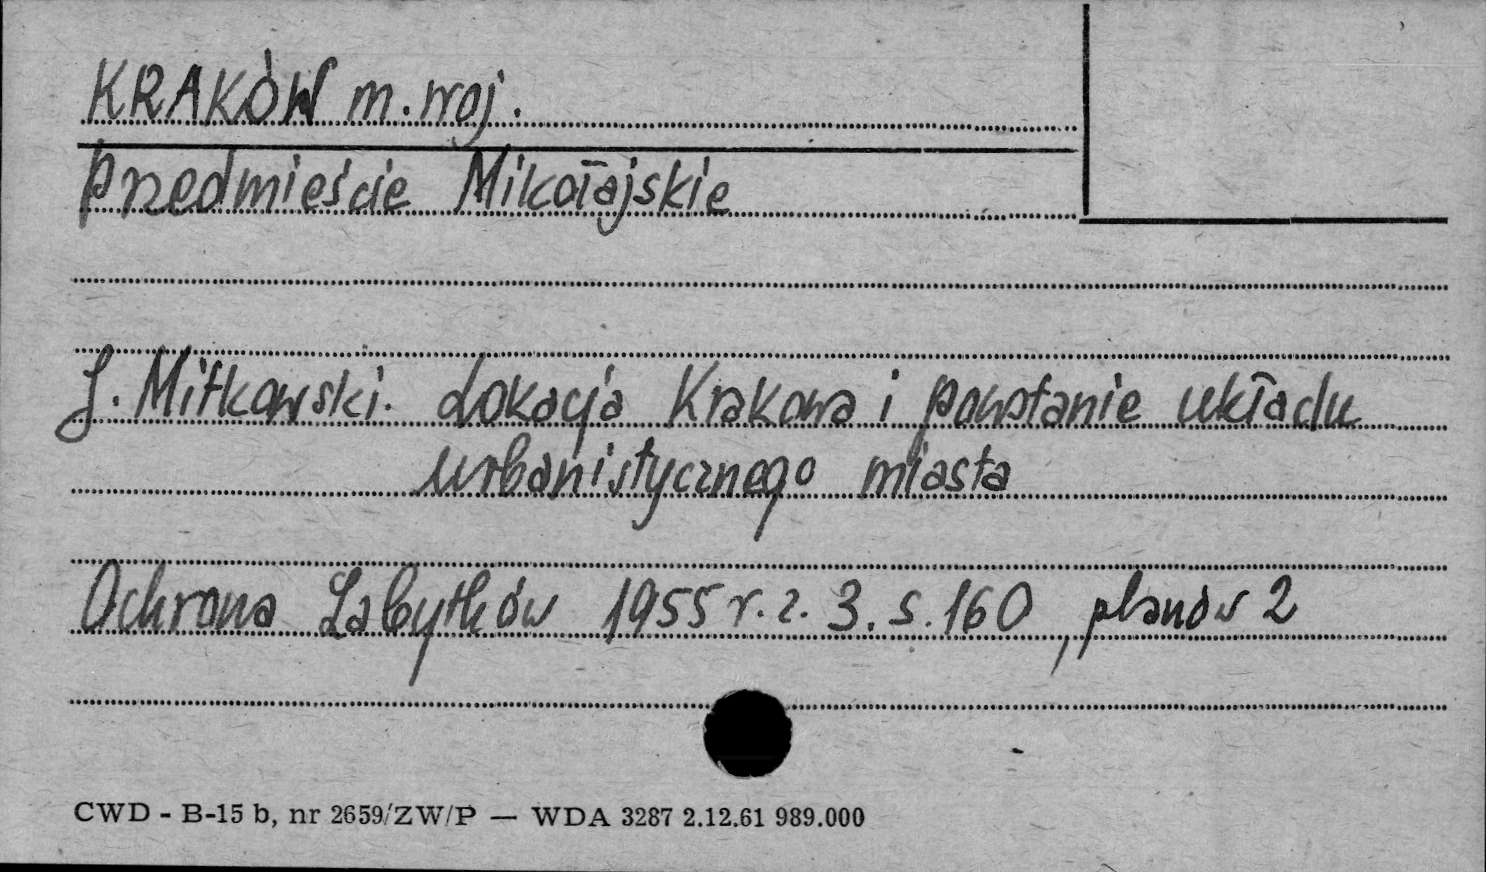 KRAKÓW m. woj.
Przedmieście Mikołajskie
J. Mitkowski. Lokacja Krakowa i powstanie układu
urbanistycznego miasta
Ochrona Zabytków 1955 r. z. 3. s. 160, planów 2
CWD - B-15 b, nr 2659/ZW/P — WDA 3287 2.12.61 989.000